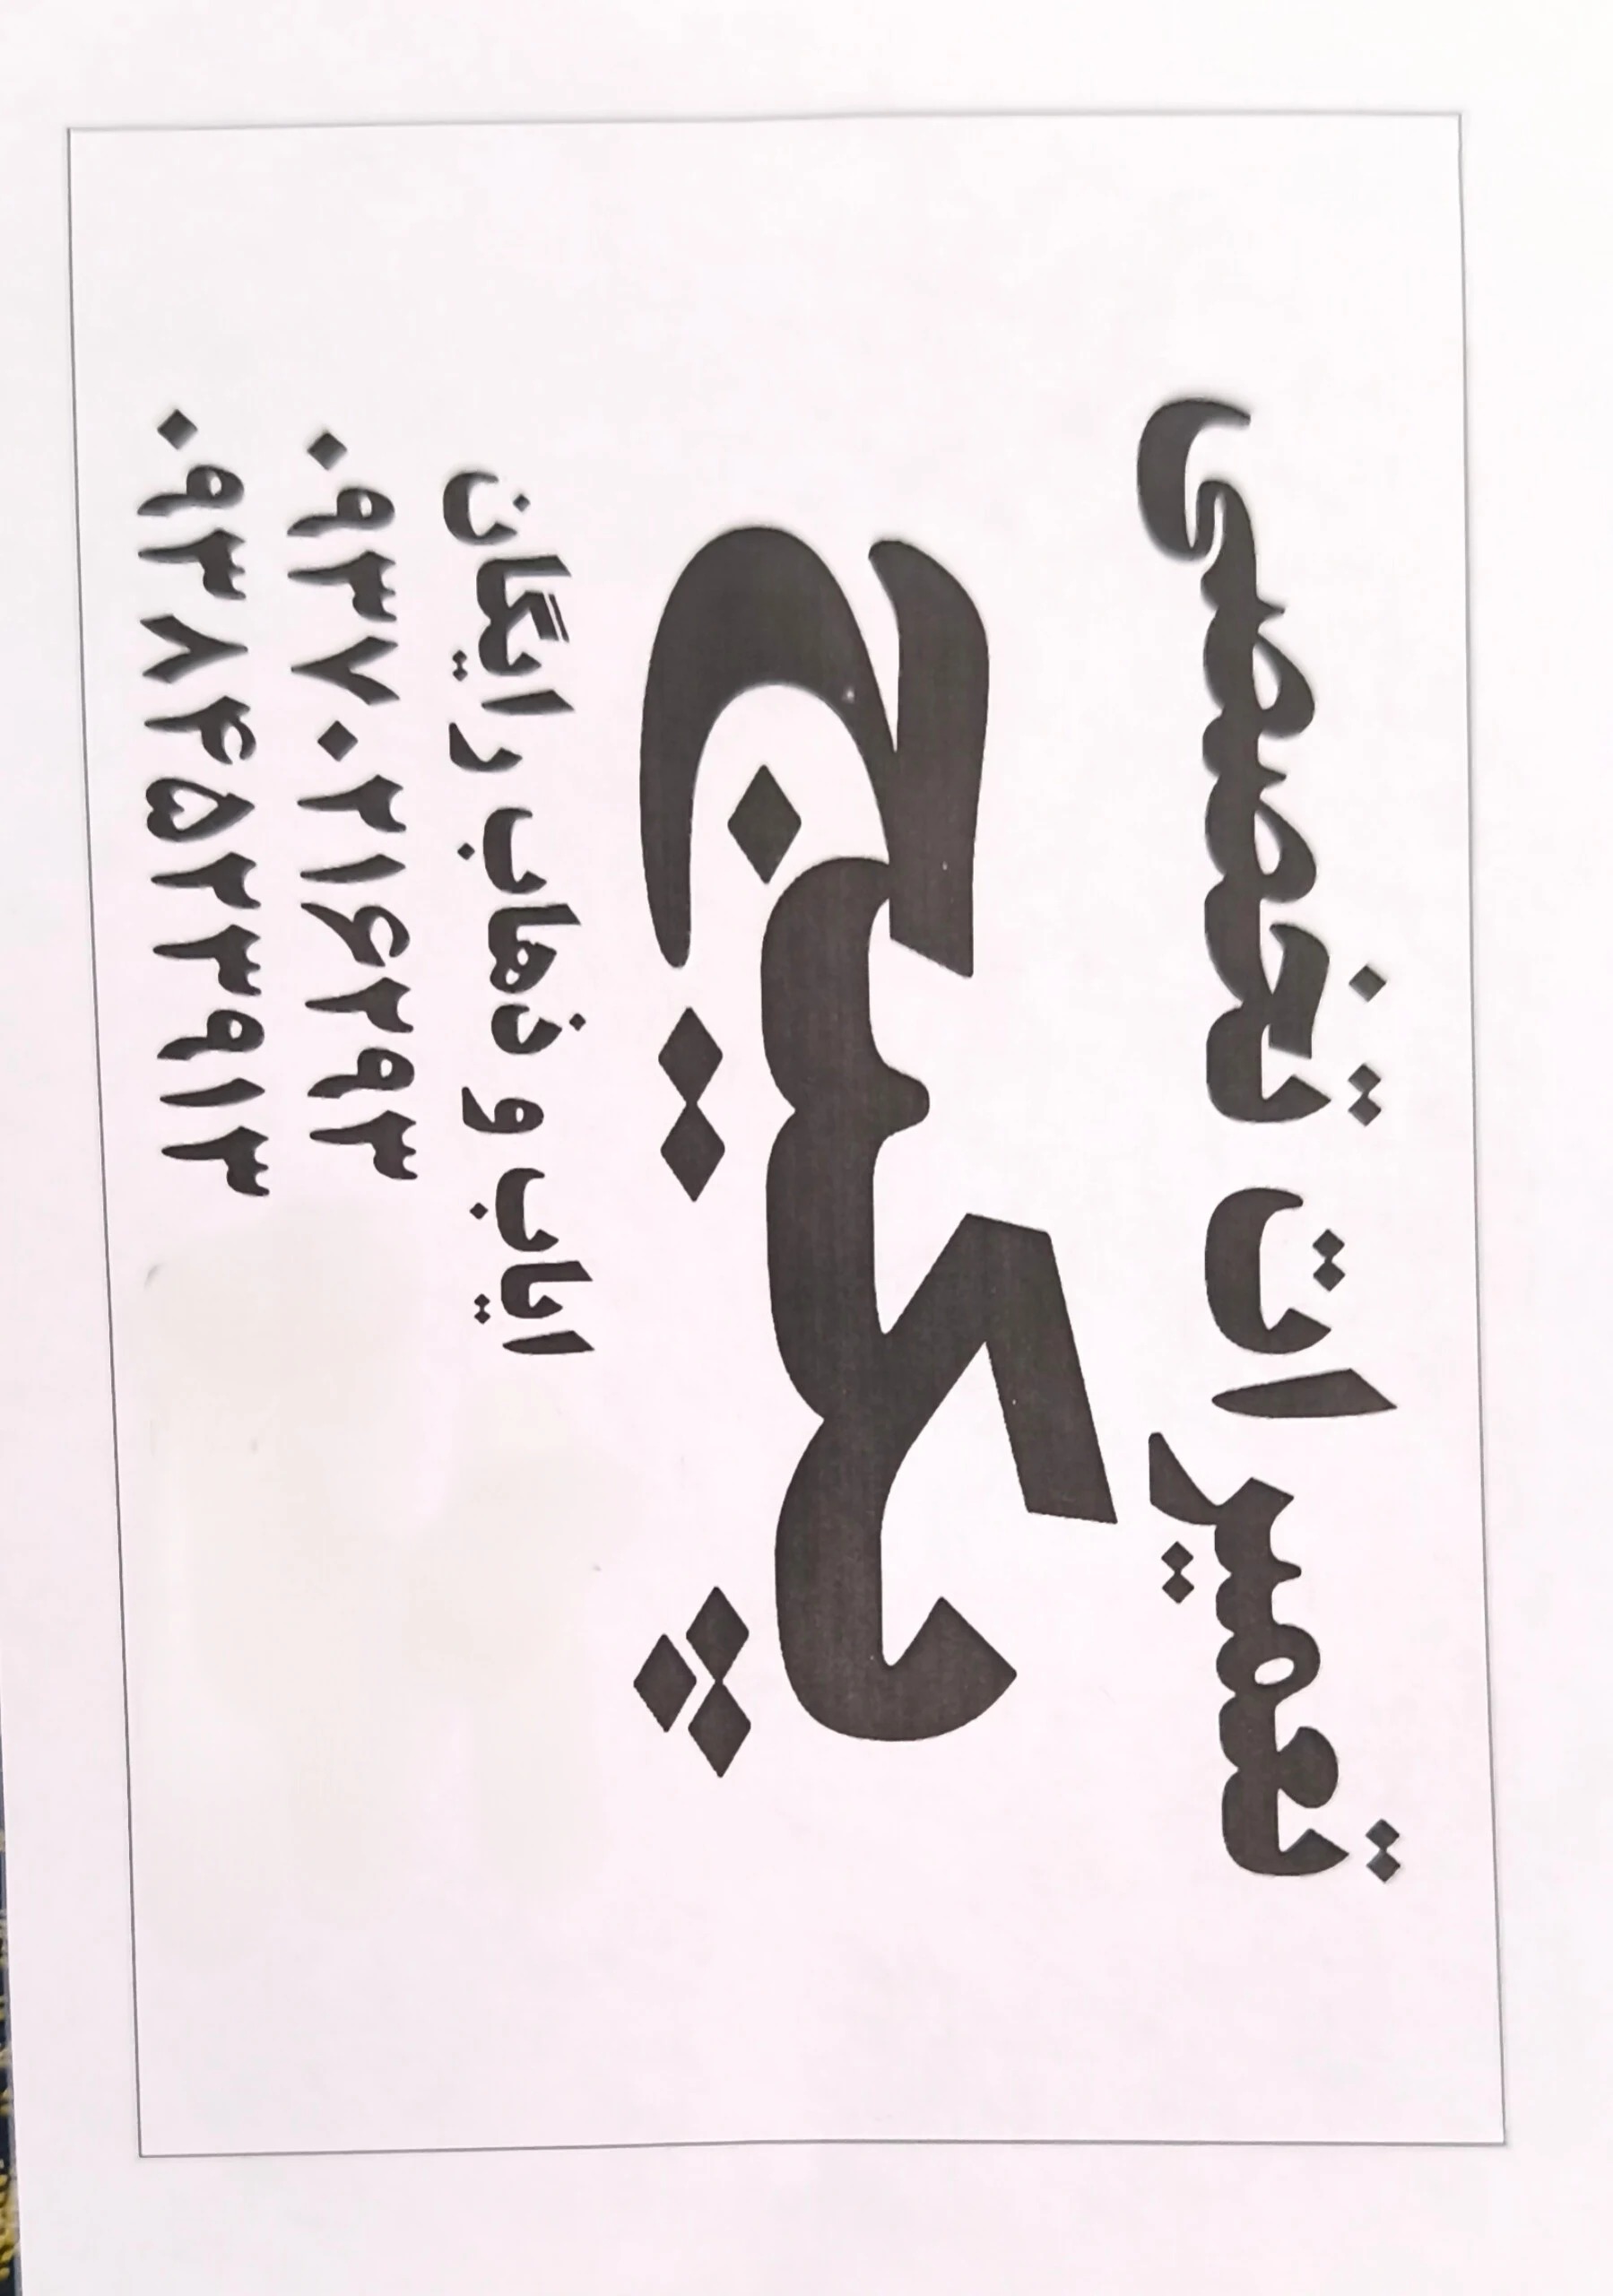 تعمیرات تخصصی
پکیج
ایاب و ذهاب رایگان
۰۹۳۷۰۲۱۶۲۹۳
۰۹۳۸۴۵۲۳۹۱۳